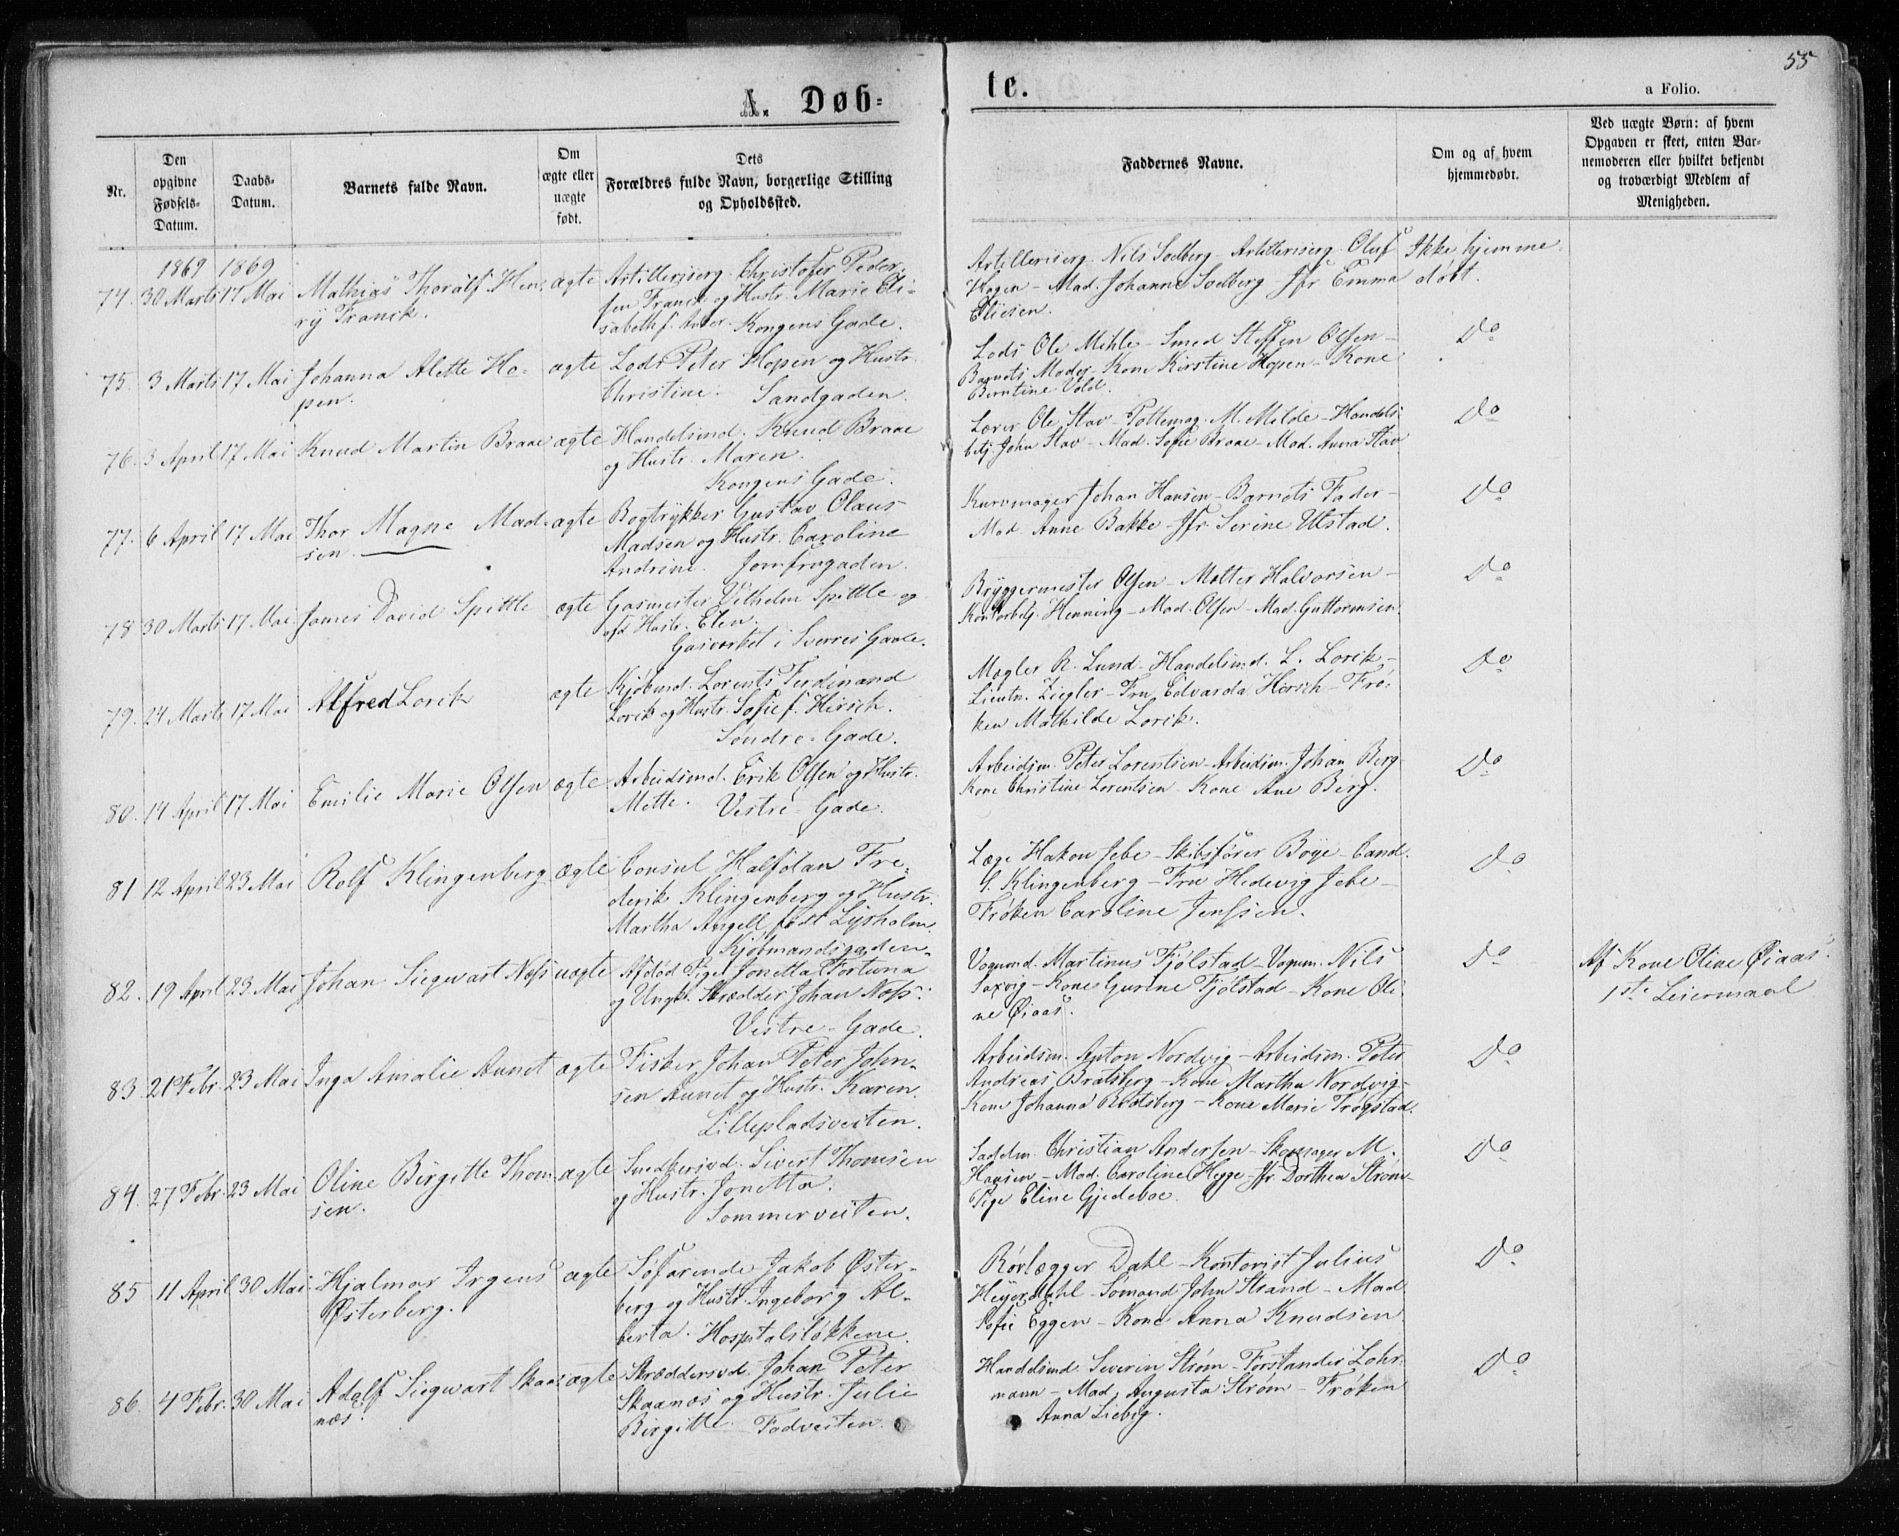 55
A. Døb-
te.
a Folio.
Nr.
Den
opgivne
Fødsels-
Datum.
Daabs-
Datum.
Barnets fulde Navn.
Om
ægte eller
uægte
født.
Dets
Forældres fulde Navn, borgerlige Stilling
og Opholdssted.
Faddernes Navne.
Om og af hvem
hjemmedøbt.
Ved uægte Børn: af hvem
Opgaven er skeet, enten Bar-
nemoderen eller hvilket bekjendt
og troværdigt Medlem af
Menigheden.
1869 1869
74. 30 Marts 17 Mai Mathias Thoralf Hen-
ry Franck.
ægte
Artillerserg. Christofer Peder-
sen Franck og Hustr. Marie Eli-
sabeth f. Kongens Gade.
Artilleriserg. Nils Sodberg - Artilleriserg. Oluf
Hagen - Mad. Johanne Sodberg - Jfr Emma
Eliesen.
Ikke hjemme
døbt.
75. 3 Marts 17 Mai Johanna Alette Ho-
pen.
ægte
Lods Peter Hopen og Hustr.
Christine. Sandgaden.
Lods Ole Mehle - Smed Steffen Olsen -
Barnets Moder - Kone Kirstine Hopen - Kone
Berntine Vold.
Do
76. 3 April 17 Mai Knud Martin Braae
ægte
Handelsmd. Knud Braae
og Hustr. Maren.
Kongens Gade.
Lærer Ole Stav - Pottemag. M. Milde - Handels-
betj. John Stav - Mad. Sofie Braae - Mad. Anna Stav
Do
77. 6 April 17 Mai Thor Magne Mad-
sen.
ægte
Bogtrykker Gustav Olaus
Madsen og Hustr. Caroline
Andrine. Jomfrugaden.
Kurvmager Johan Hansen - Barnets Fader -
Mad. Anne Bakke - Jfr. Serine Utstad.
Do
78 30 Marts 17 Mai James David Spittle
ægte
Gasmester Vilhelm Spittle og
Hustr. Elen.
Gasværket i Sverres Gade.
Bryggermester Olsen - Møller Halvorsen -
Kontorbetj. Henning - Mad. Olsen - Mad. Guttormsen
Do
79. 24 Marts 17 Mai Alfred Lorik
ægte
Kjøbmd. Lorents Ferdinand
Lorik og Hustr. Sofie f. Hirsch.
Søndre-Gade.
Mægler R. Lund - Handelsmd. L. Lorik -
Lieutn. Ziegler - Fru Edvarda Hirsch - Frø-
ken Mathilde Lorik.
Do
80. 14 April 17 Mai Emilie Marie Olsen
ægte
Arbeidsmd. Erik Olsen og Hustr.
Mette. Vestre-Gade.
Arbeidsm. Peter Lorentsen - Arbeidsm. Johan Berg
Kone Christine Lorentsen - Kone Ane Berg.
Do
81 12 April 23 Mai Rolf Klingenberg
ægte
Consul Halfdan Fre-
derik Klingenberg og Hustr.
Martha Angell født Lysholm.
Kjøbmandsgaden.
Læge Hakon Jebe - Skibsfører Boye - Cand.
S. Klingenberg - Fru Hedevig Jebe -
Frøken Caroline Jenssen.
Do
82. 19 April 23 Mai Johan Siegwart Næss
uægte
Afdød Pige Jonetta Fortuna
og Ungk. Skrædder Johan Næss.
Vestre-Gade.
Vognmd. Martinus Fjølstad - Vognm. Nils
Saxvig - Kone Gurine Fjølstad - Kone Oli-
ne Øiaas.
Do
Af Kone Oline Øiaas.
1ste Leiermaal
83. 21 Febr. 23 Mai Inga Amalie Aunet
ægte
Fisker Johan Peter John-
sen Aunet og Hustr. Karen.
Lillepladsveiten.
Arbeidsm. Anton Nordvig - Arbeidsm. Peter
Andreas Bratsberg - Kone Martha Nordvig -
Kone Johanna Bratsberg - Kone Marie Trøgstad.
Do
84. 27 Febr. 23 Mai Oline Birgitte Thom-
sen.
ægte
Snedkersvd. Sivert Thomsen
og Hustr. Jonetta.
Sommerveiten.
Sadelm. Christian Andersen - Skomager M.
Hansen - Mad. Caroline Hegge - Jfr. Dorthea Strøm
Pige Eline Gjedeboe.
Do
85 11 April 30 Mai Hjalmar Irgens
Østerberg.
ægte
Søfarende Jakob Øster-
berg og Hustr. Ingeborg Al-
berta. Hospitalsløkkene.
Rørlægger Dahl - Kontorist Julius
Heyerdahl - Sømand John Strand - Mad
Sofie Eggen - Kone Anna Knudsen
Do
86. 4 Febr. 30 Mai Adolf Siegwart Skaa-
næs.
ægte
Skræddersvd. Johan Peter
Skaanæs og Hustr. Julie
Birgitte. Fadveiten.
Handelsmd Severin Strøm - Forstander Lohr-
mann - Mad. Augusta Strøm - Frøken
Anna Liebig.
Do